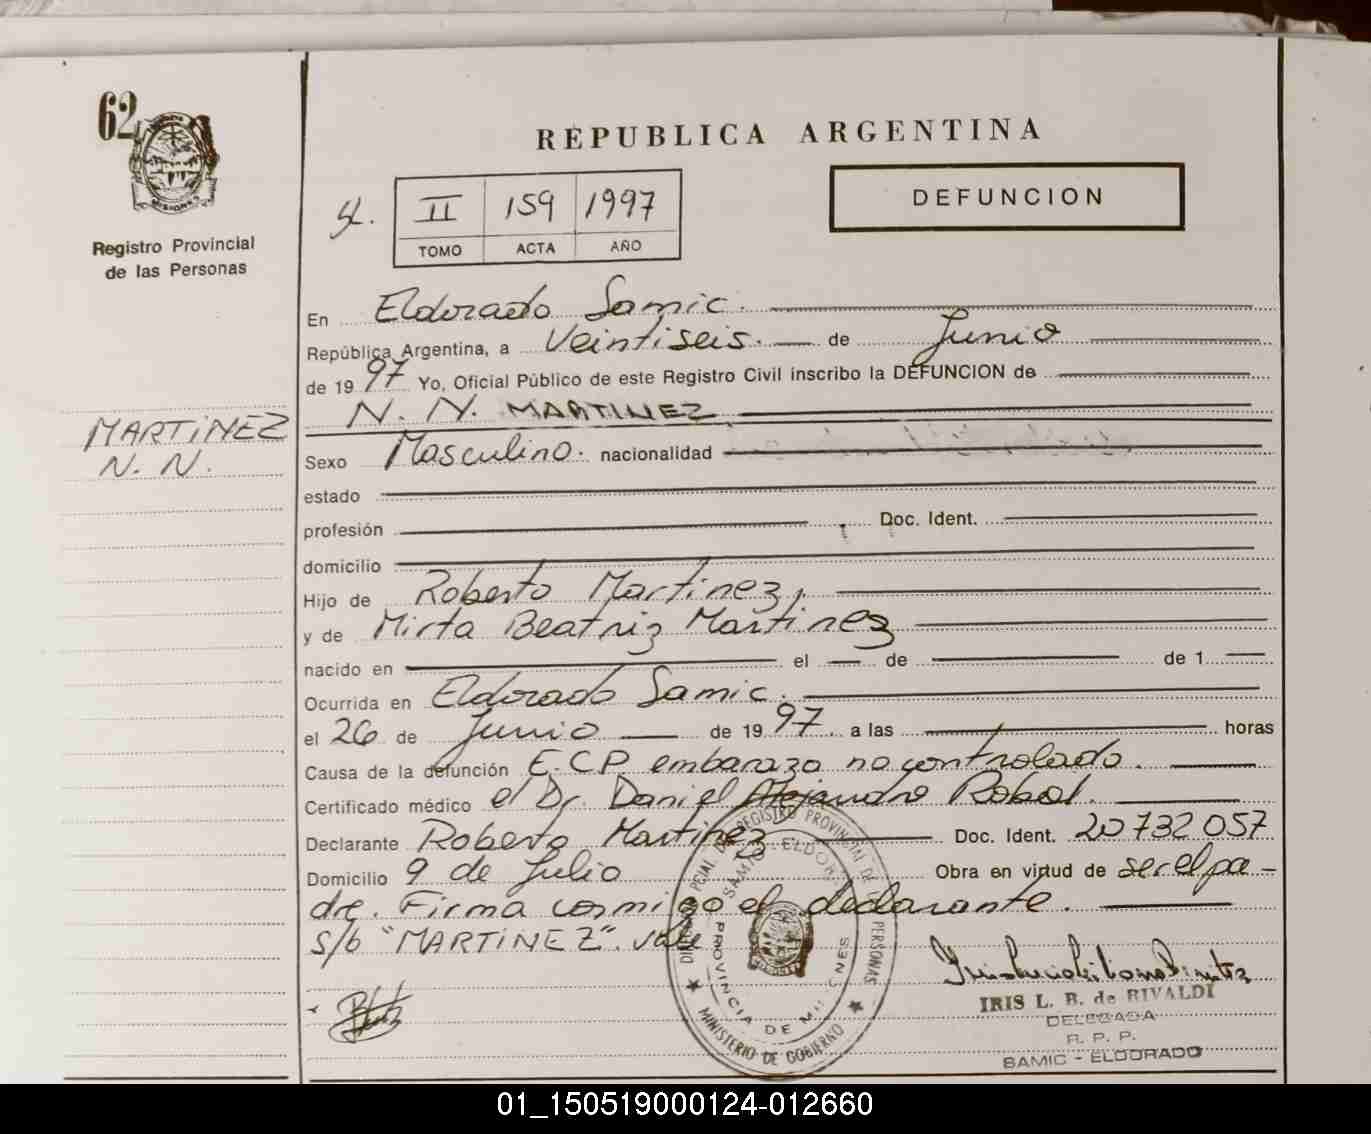 62
MISIONES
Registro Provincial
de las Personas
MARTINEZ
N. N.
REPUBLICA ARGENTINA
II 159 1997
TOMO ACTA AÑO
DEFUNCION
En Eldorado Samic.
República Argentina, a Veintiseis. de Junio
de 1997 Yo, Oficial Público de este Registro Civil inscribo la DEFUNCION de
N. N. MARTINEZ
Sexo Masculino. nacionalidad
estado
profesión Doc. Ident.
domicilio
Hijo de Roberto Martinez,
y de Mirta Beatriz Martinez
nacido en el de de 1
Ocurrida en Eldorado Samic.
el 26 de Junio de 1997. a las horas
Causa de la defunción E.C.P embarazo no controlado.
Certificado médico el Dr. Daniel Alejandro Robol.
Declarante Roberto Martinez Doc. Ident. 20732057
Domicilio 9 de Julio Obra en virtud de ser el pa-
dre. Firma conmigo el declarante.
s/b "MARTINEZ". Vale
PROVINCIAL DE PERSONAS
PROVINCIA DE
MINISTERIO DE GOBIERNO
IRIS L. B. de RIVALDI
DELEGADA
R. P. P.
SAMIC - ELDORADO
01_150519000124-012660